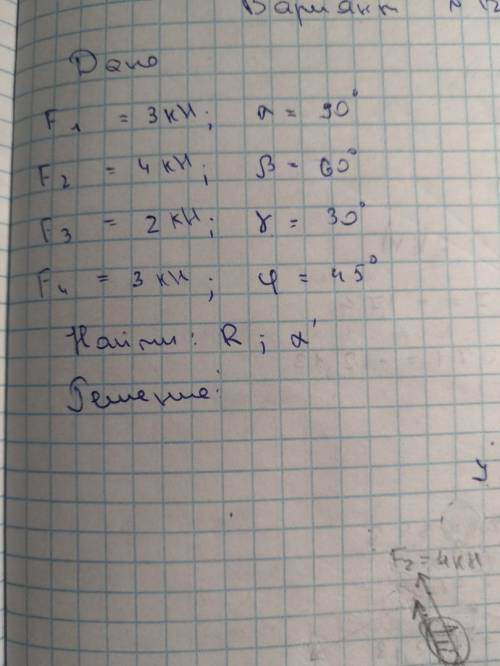 Вариант №
Дано
F1 = 3кН; α = 90°
F2 = 4кН; β = 60°
F3 = 2кН; γ = 30°
F4 = 3кН; φ = 45°
Найти: R; α'
Решение:
y
F2 = 4кН